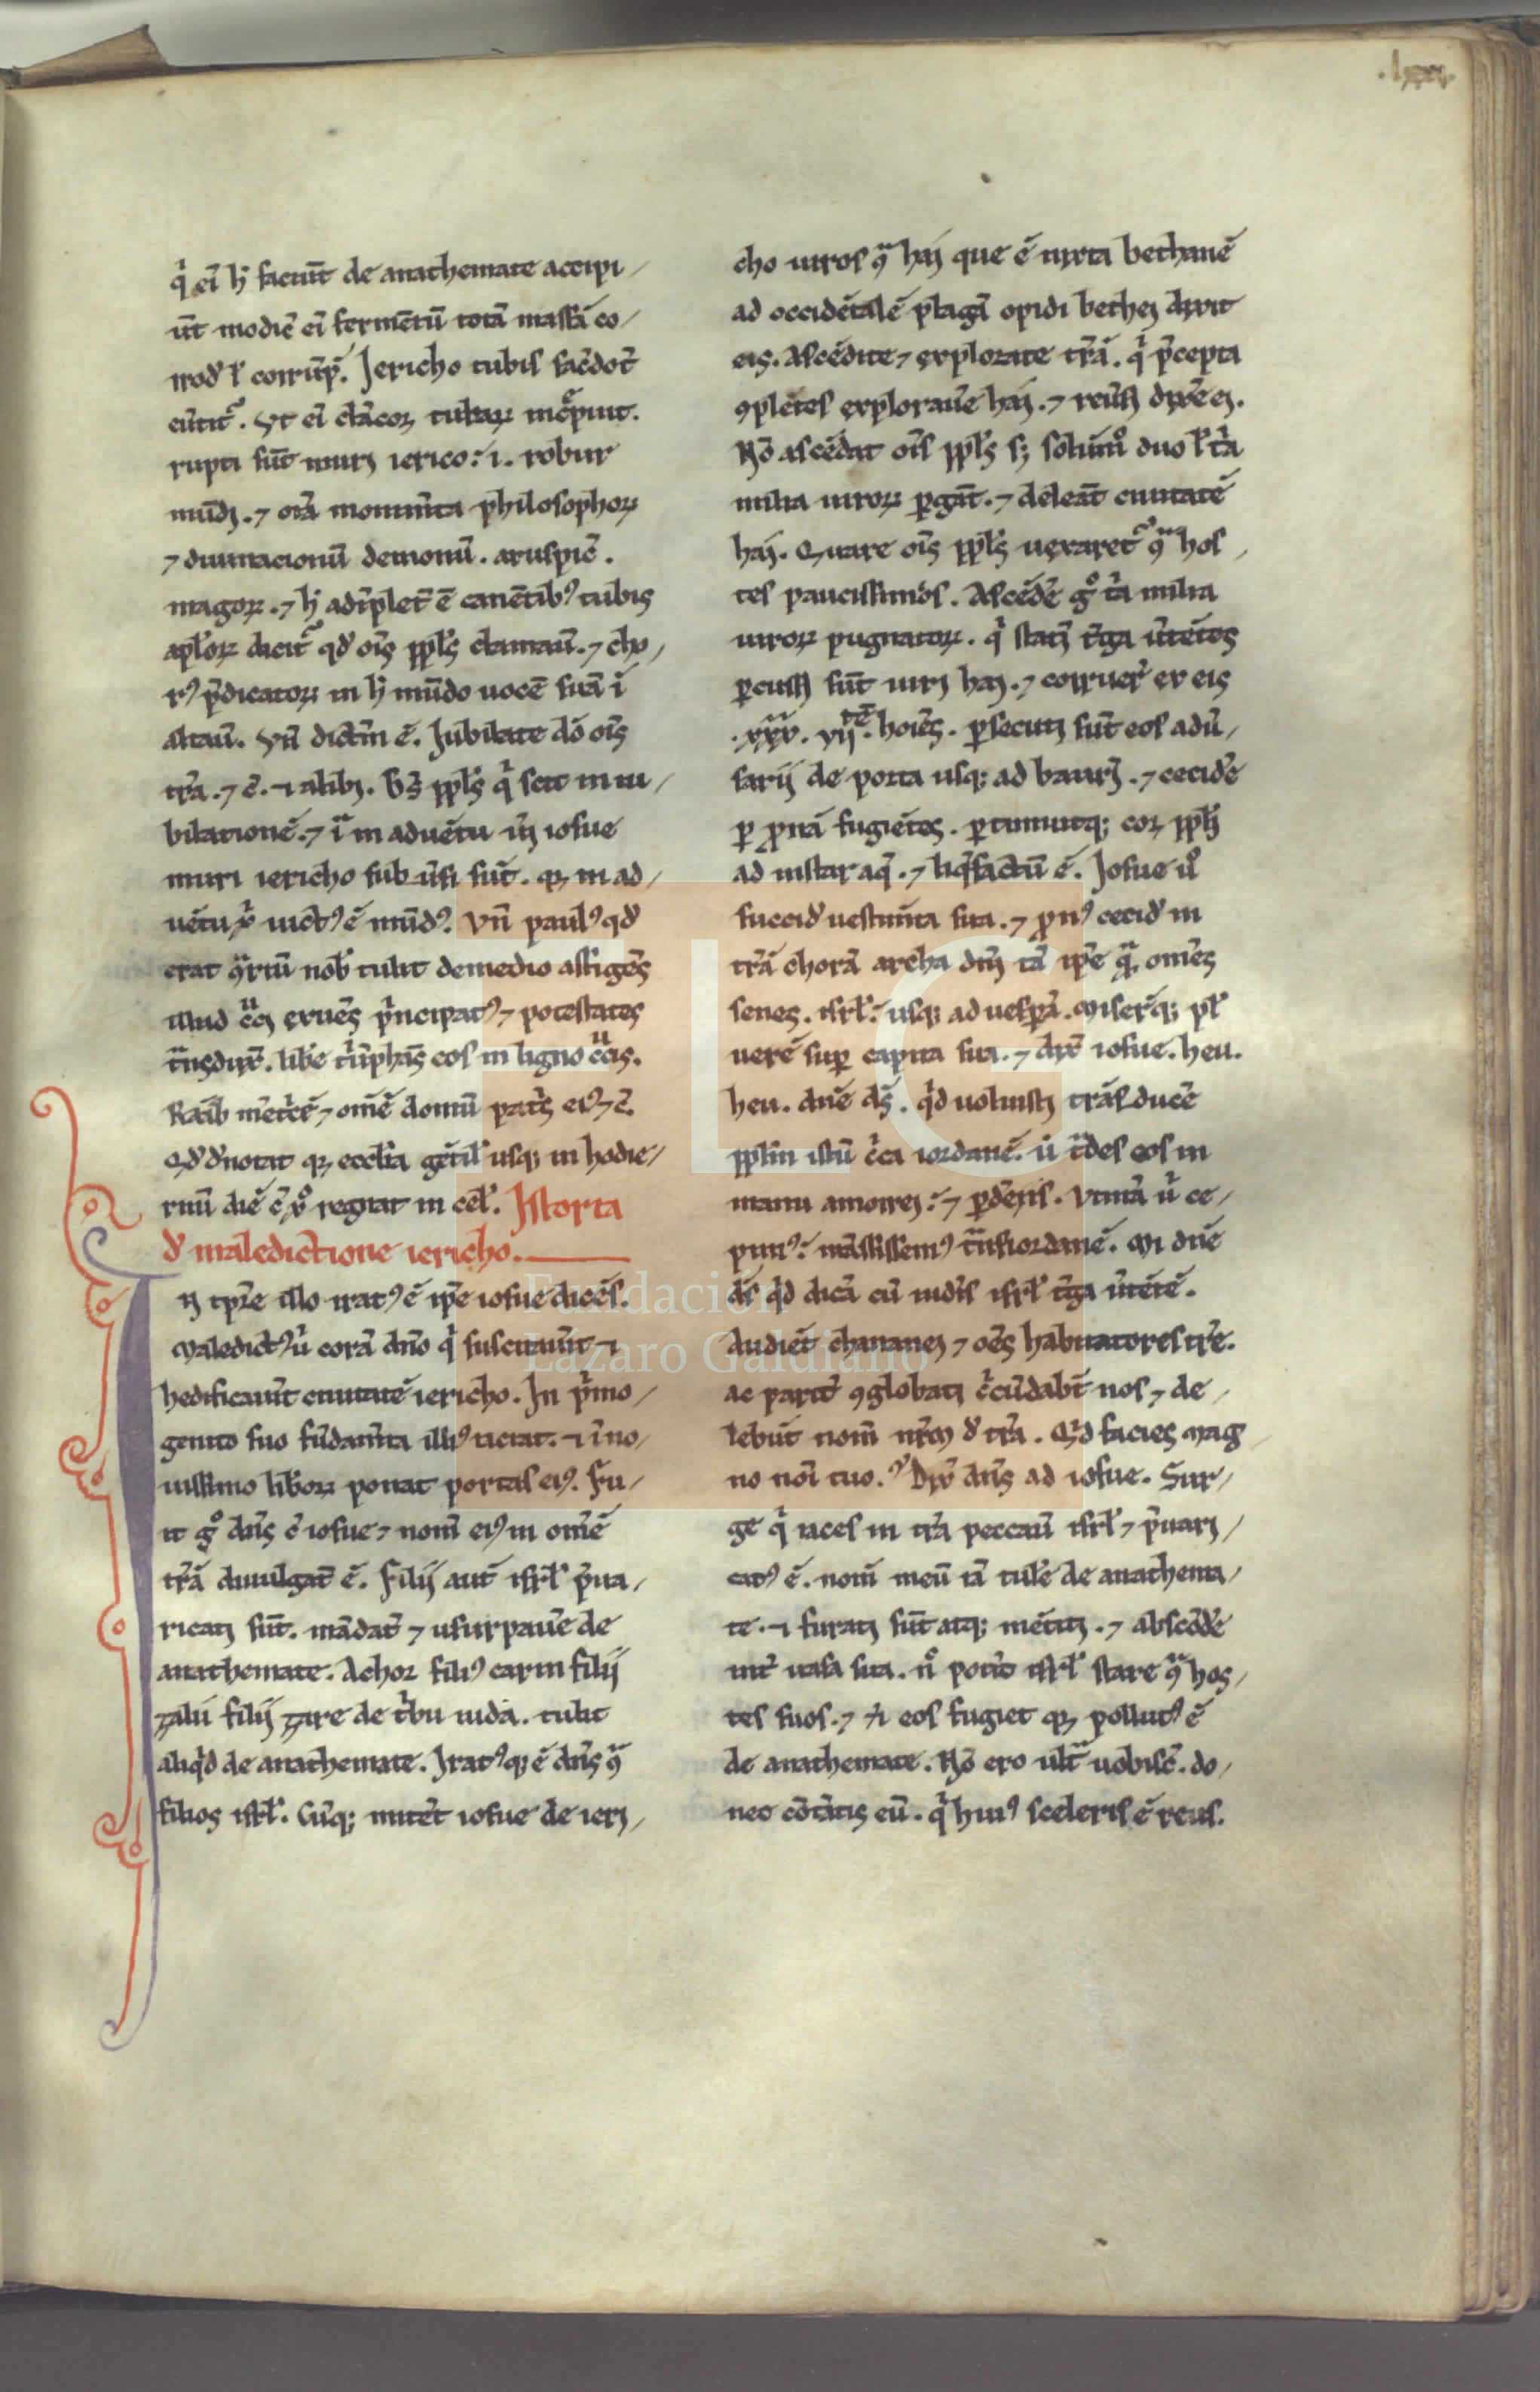 .lxxi.
q̾ eī h̾ faciūt de anathemate accipi/
ūt modic̄ eī fermētū totā massā co/
rrod̾ l̾ corrūp̄. Jericho tubis sac̾dot̾
cūtit᷑. Vt eī clāgoꝝ tubaꝝ īc̄piūt.
rupti sūt muri ierico: .i. robur
mūdi. ⁊ oīa monumēta philosophoꝝ
⁊ diuinacionū demonū. aruspic̄.
magoꝝ. ⁊ h̾ adīplet̄ ē canētibꝰ tubis
apl̾oꝝ dicit᷑ qd̾ oīs ppl̾s clamauit̄. ⁊ cho/
rꝰ p̄dicatoꝝ in h̾ mūdo uocē suā ī
altauit̄. Vn̄ dictū ē. Jubilate dō oīs
tr̄a. ⁊ c̄. ⁊ alibi. Bt̄s ppl̾s q̾ scit in iu/
bilationē. ⁊ iā in aduētu ū̾i iosue
muri iericho sub ūsi sūt. qꝫ in ad/
uētu x̄ uictꝰ ē mūdꝰ. Vn̄ paulꝰ qd̾
erat ꝯ̾riū nob̾ tulit de medio affigēs
illud c̾ci exuēs p̾ncipatꝰ ⁊ potestates
t̾nsdux̄. lib̾e t̾ūphās eos in ligno c̾cis.
Raab m̄et̾cē ⁊ omē domū pat̾s eiꝰ ⁊ c̄.
Qd̾ d̾notat qꝫ eccl̾ia gētil̾ usqꝫ in hodie/
rnū diē c̄ x̄o regnat in cel̾. Jstoria
d̾ maledictione iericho.
IN tp̄re illo iratꝰ ē ip̄e iosue dicēs.
Maledictꝰ ū̾ corā dn̄o q̾ suscitauīt ⁊
hedificauīt ciuitatē iericho. In p̾mo/
genito suo fūdam̄ta illiꝰ iaciat. ⁊ ī no/
uissimo lib̾oꝝ ponat portas eiꝰ. Fu/
it g̊ dn̄s c̄ iosue ⁊ nom̄ eiꝰ in omē
tr̄ā diuulgat̄ ē. Filij aut̄ isrl̾ p̄ua/
ricati sūt. mādat̄ ⁊ usurpauē de
anathemate. Achor filiꝰ carm filij
zabii filij zare de t̾bu iuda. tulit
aliq̾d de anathemate. Iratꝰqꝫ ē dn̄s ꝯ̾
filios isrl̾. Cūqꝫ mitet̾ iosue de ieri/
cho uiros ꝯ̾ haj que ē iuxta bethanē
ad occidētalē plagā opidi bethei dixit
eis. Ascēdite ⁊ explorate tr̄ā. q̾ p̄cepta
ꝯplētes explorauē haj. ⁊ reūsi dixēei.
Nō ascēdat oīs ppl̾s sꝫ solūm̊ duo l̾ t̾a
milia uiroꝝ p̱gāt. ⁊ deleāt ciuitatē
haj. Quare oīs ppl̾s uexaret᷑ ꝯ̾ hos/
tes paucissimos. Ascēdē g̊ t̾a milia
uiroꝝ pugnatoꝝ. q̾ stati t̄ga ūtētes
p̱cussi sūt uiri haj. ⁊ corruer̄ ex eis
.xxx. vij. hoīes. p̱secuti sūt eos adū/
sarij de porta usqꝫ ad baurī. ⁊ cecid̾e
p̱ pronā fugiētes. p̱timuitqꝫ coꝝ ppl̾i
ad instar aq̄. ⁊ liq̄factū ē. Josue ū̊
succid̾ uestim̄ta sua. ⁊ pronꝰ cecid̾ in
tr̄ā chorā archa dn̄i tā ip̄e q̄ omēs
senes. isrl̾: usqꝫ ad uesp̱ā. Miserūtqꝫ pl̾
uerē sup̱ capita sua. ⁊ dix̄ iosue. heu.
heu. dn̄e ds̄. q̾d uoluisti trāsducē
ppl̾m istū c̾ca iordanē. ū̾ t̾des eos in
manu amorrei: ⁊ p̱dēris. Vtinā ū̾ ce/
pimꝰ: māsissemꝰ t̾ns iordanē. Mi dn̄e
ds̄ q̾d dicā cū uidēs isrl̾ t̄ga ūtētē.
Audiēt chananei ⁊ oēs habitatores tr̄e.
ac parit̾ ꝯglobati c̾cūdabt̄ nos ⁊ de/
lebūt nom̄ nr̄m d̾ tr̄a. Q̾d facies mag
no noī tuo. Dix̄ dn̄s ad iosue. Sur/
ge q̾ iaces in tr̄a peccauit̄ isrl̾ ⁊ p̄uari/
catꝰ ē. nom̄ meū iā tul̾e de anathema/
te. ⁊ furati sūt atqꝫ mētiti. ⁊ abscōd̾e
int̾ uasa sua. n̊ pot̾it isrl̾ stare ꝯ̾ hos/
tes suos. ⁊ n̾ eos fugiet qꝫ pollutꝰ ē
de anathemate. Nō ero ult̾ uobisc̄. do/
nec cōt̾atis eū. q̾ huiꝰ sceleris ē reus.
Fundación
Lázaro Galdiano